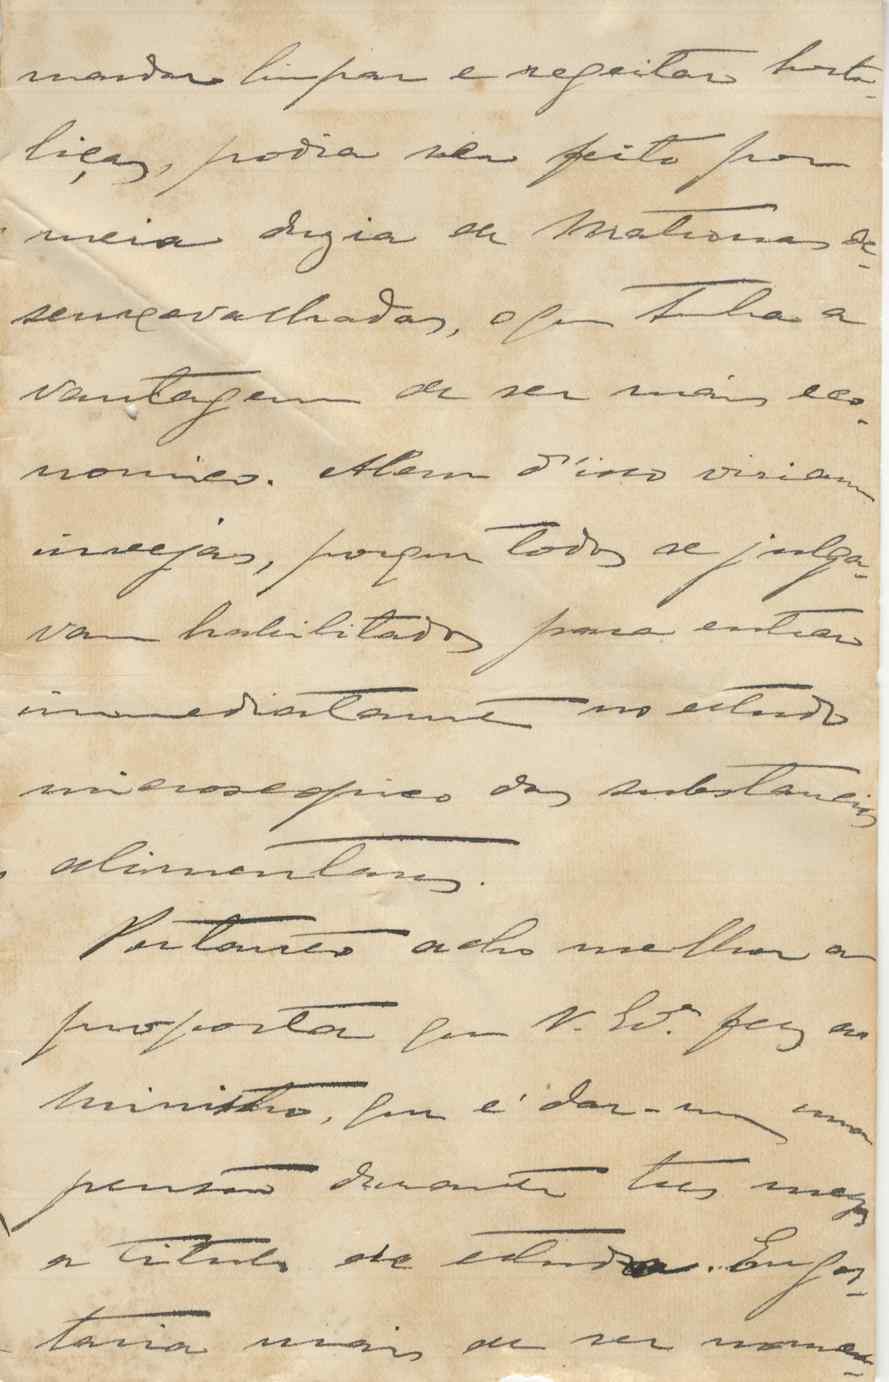 mandar limpar e regeitar horta-
liças, podia ser feito por
meia duzia de Matronas de-
senxovalhadas, o que tinha a
vantagem de ser mais eco-
nomico. Alem d'isso viriam
invejas, porque todos se julga-
vam habilitados para entrar
immediatamente no estudo
microscopico das substancias
alimentares.
Portanto acho melhor a
proposta que V. Ex.ª fez ao
Ministro, que é dar-me uma
pensão durante tres mezes
a titulo de estudo. Eu gos-
taria mais de ser nomea-